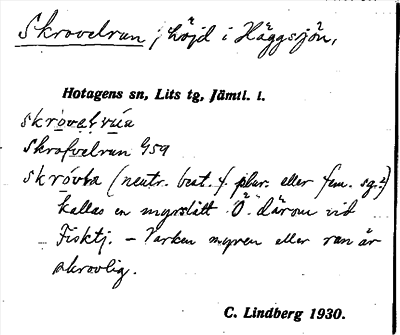 Skrovelrun, höjd i Häggsjön,
Hotagens sn, Lits tg, Jämtl. l.
skròvelrúa
Skrofvelrun GSA
skròvla (neutr. best. f. plur. eller fem. sg.?)
kallas en myrslått Ö. därom vid
Fisktj. – Varken myren eller run är
skrovlig.
C. Lindberg 1930.